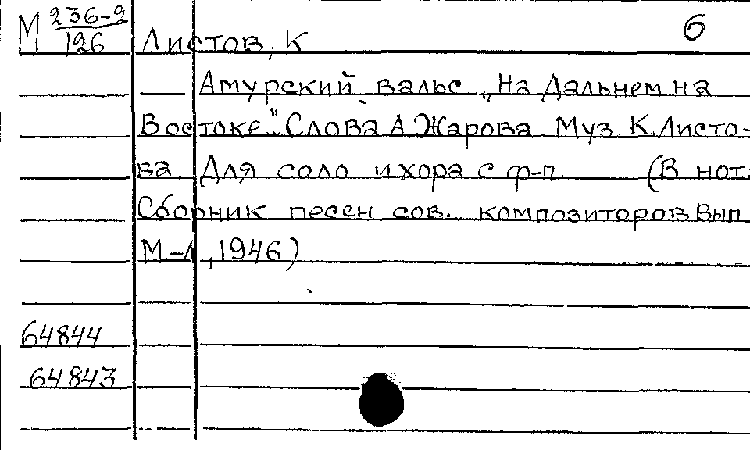 М 236-9/126 Листов, К 6
Амурский вальс „На Дальнем на
Востоке." Слова А Жарова Муз К. Листо-
ва Для соло и хора с ф-п (В нот.
Сборник песен сов. композиторов Вып
М-Л, 1946)
64844
64843